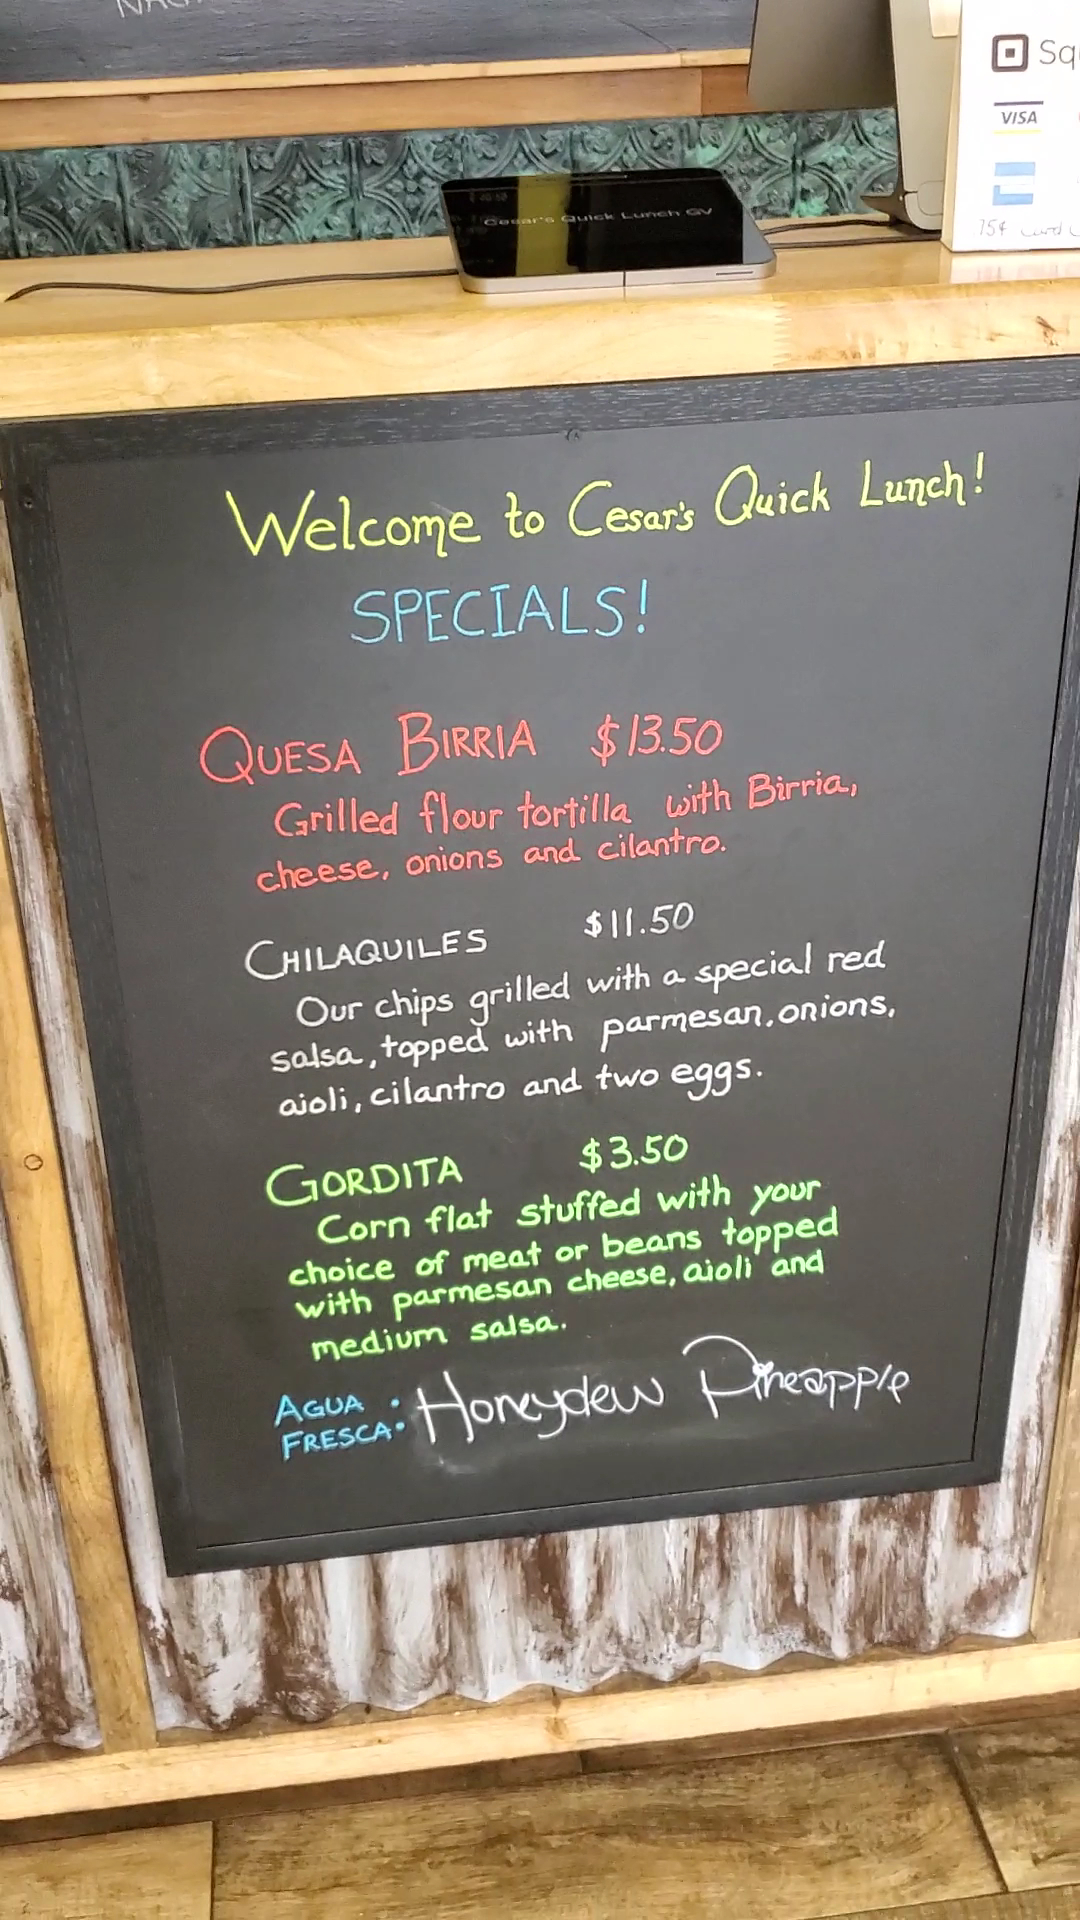 Square
VISA
75¢ Card
Cesar's Quick Lunch GV
Welcome to Cesar's Quick Lunch!
SPECIALS!
QUESA BIRRIA $13.50
Grilled flour tortilla with Birria,
cheese, onions and cilantro.
CHILAQUILES $11.50
Our chips grilled with a special red
salsa, topped with parmesan, onions,
aioli, cilantro and two eggs.
GORDITA $3.50
Corn flat stuffed with your
choice of meat or beans topped
with parmesan cheese, aioli and
medium salsa.
AGUA
FRESCA: Honeydew Pineapple